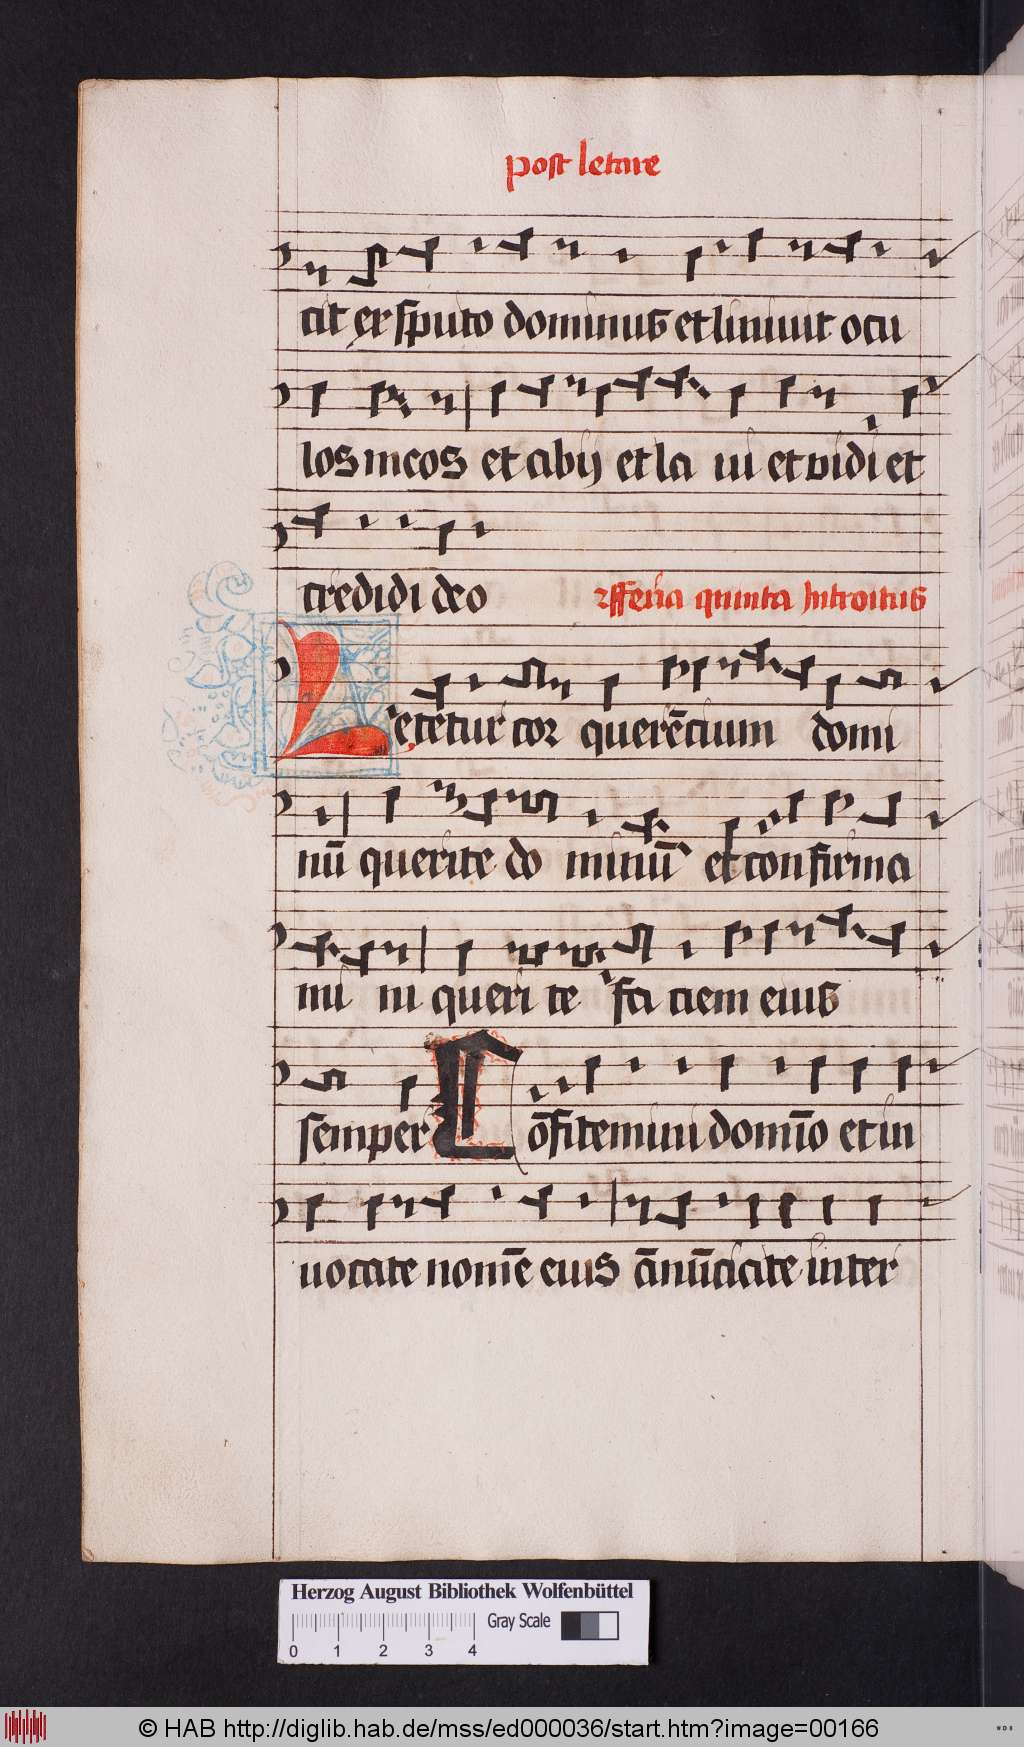 post letare
cit ex sputo dominus et liniuit ocu
los meos et abij et la ui et vidi et
credidi deo
feria quinta Introitus
Letetur cor querēcium domi
nū querite do minū et confirma
mi ni queri te fa ciem eius
semper Cōfitemini domīo et in
uocate nomē eius ānūciate inter
Herzog August Bibliothek Wolfenbüttel
Gray Scale
0 1 2 3 4
© HAB http://diglib.hab.de/mss/ed000036/start.htm?image=00166